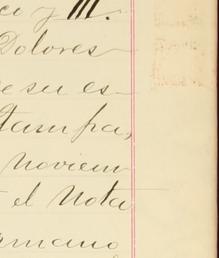 co y M.
Dolores
de su es-
tampa,
Noviem
el Nota
ermano